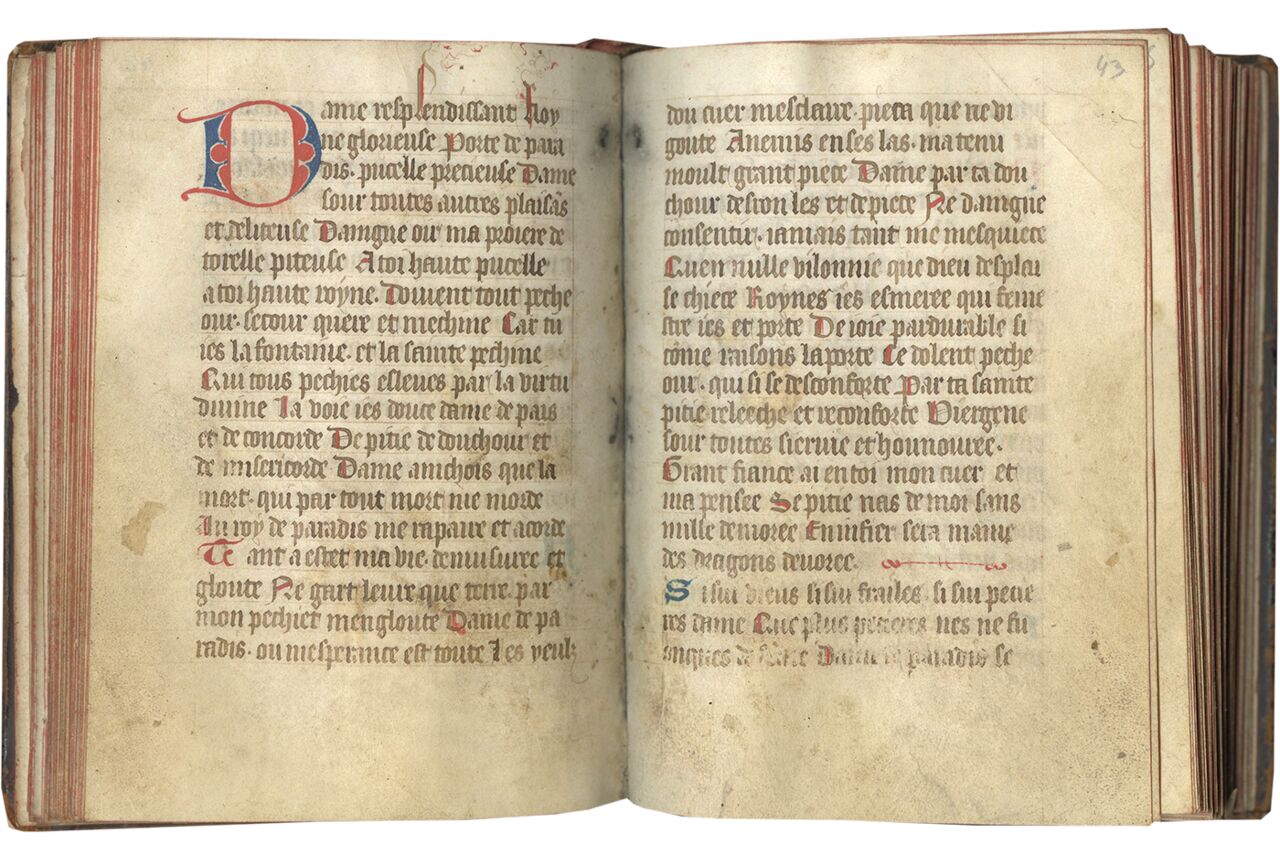 Dame resplendissant Roy
ne glorieuse Porte de para
dis. pucelle precieuse Dame
sour toutes autres plaisās
et deliteuse Daingne oir ma proiere de
torelle piteuse A toi haute pucelle
a toi haute royne. Doivent tout peche
our. secour querre et mechine Car tu
ies la fontaine. et la sainte pechine
Qui tous pechies esleues par la virtu
divine La voie ies douce dame de pais
et de concorde De pitie de douchour et
de misericorde Dame anichois que la
mort. qui par tout mort me morde
Au roy de paradis me rapaie et acorde
Tant a estet ma vie. demusuree et
gloute Ne gart leure que terre par
mon pechiet mengloute Dame de pa
radis. ou mesperance est toute Les yeulz
43
dou cuer mesclaire. pieca que ne vi
goute Anemis en ses las. ma tenu
moult grant piece Dame par ta dou
chour desron les et depiece Ne daingne
consentir. iamais tant me mesquiece
Quen nulle vilonnie que dieu desplai
se chiece Roynes ies esmeree qui fene
stre ies et porte De ioie pardurable si
cōme raisons laporte Ce dolent peche
our. qui si se desconforte Par ta sainte
pitie releeche et reconforte Viergene
sour toutes siervie et hounouree.
Grant fiance ai en toi mon cuer et
ma pensee Se pitie nas de moi sans
nulle demoree En infier sera mame
des dragons devoree.
Si sui vieus si sui frailes. si sui pecie
res dame Que plus pecieres nes ne fu
onques de Dame de paradis se